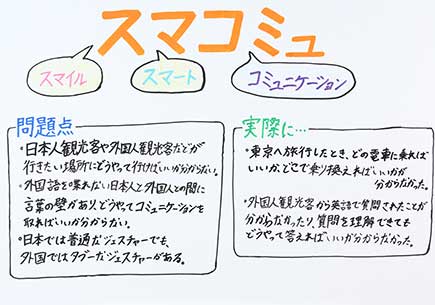 スマコミュ
スマイル
スマート
コミュニケーション
問題点
・日本人観光客や外国人観光客などが
行きたい場所にどうやって行けばいいか分からない。
・外国語を喋れない日本人と外国人との間に
言葉の壁があり、どうやってコミュニケーションを
取ればいいか分からない。
・日本では普通なジェスチャーでも、
外国ではタブーなジェスチャーがある。
実際に…
・東京へ旅行したとき、どの電車に乗れば
いいか、どこで乗り換えればいいかが
分からなかった。
・外国人観光客から英語で質問されたことが
分からなかったり、質問を理解できても
どうやって答えればいいか分からなかった。